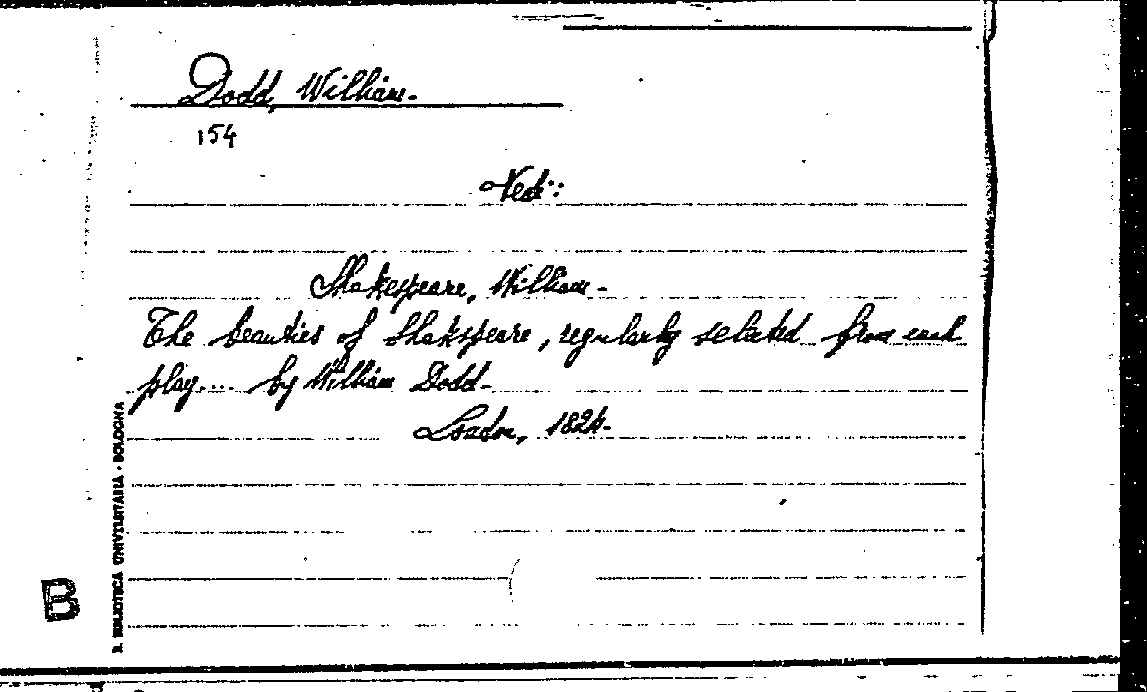 Dodd, William.
154
Vedi:
Shakespeare, William.
The beauties of Shakspeare, regularly selected from each
play.... by William Dodd.
London, 1824.
R. BIBLIOTECA UNIVERSITARIA - BOLOGNA
B